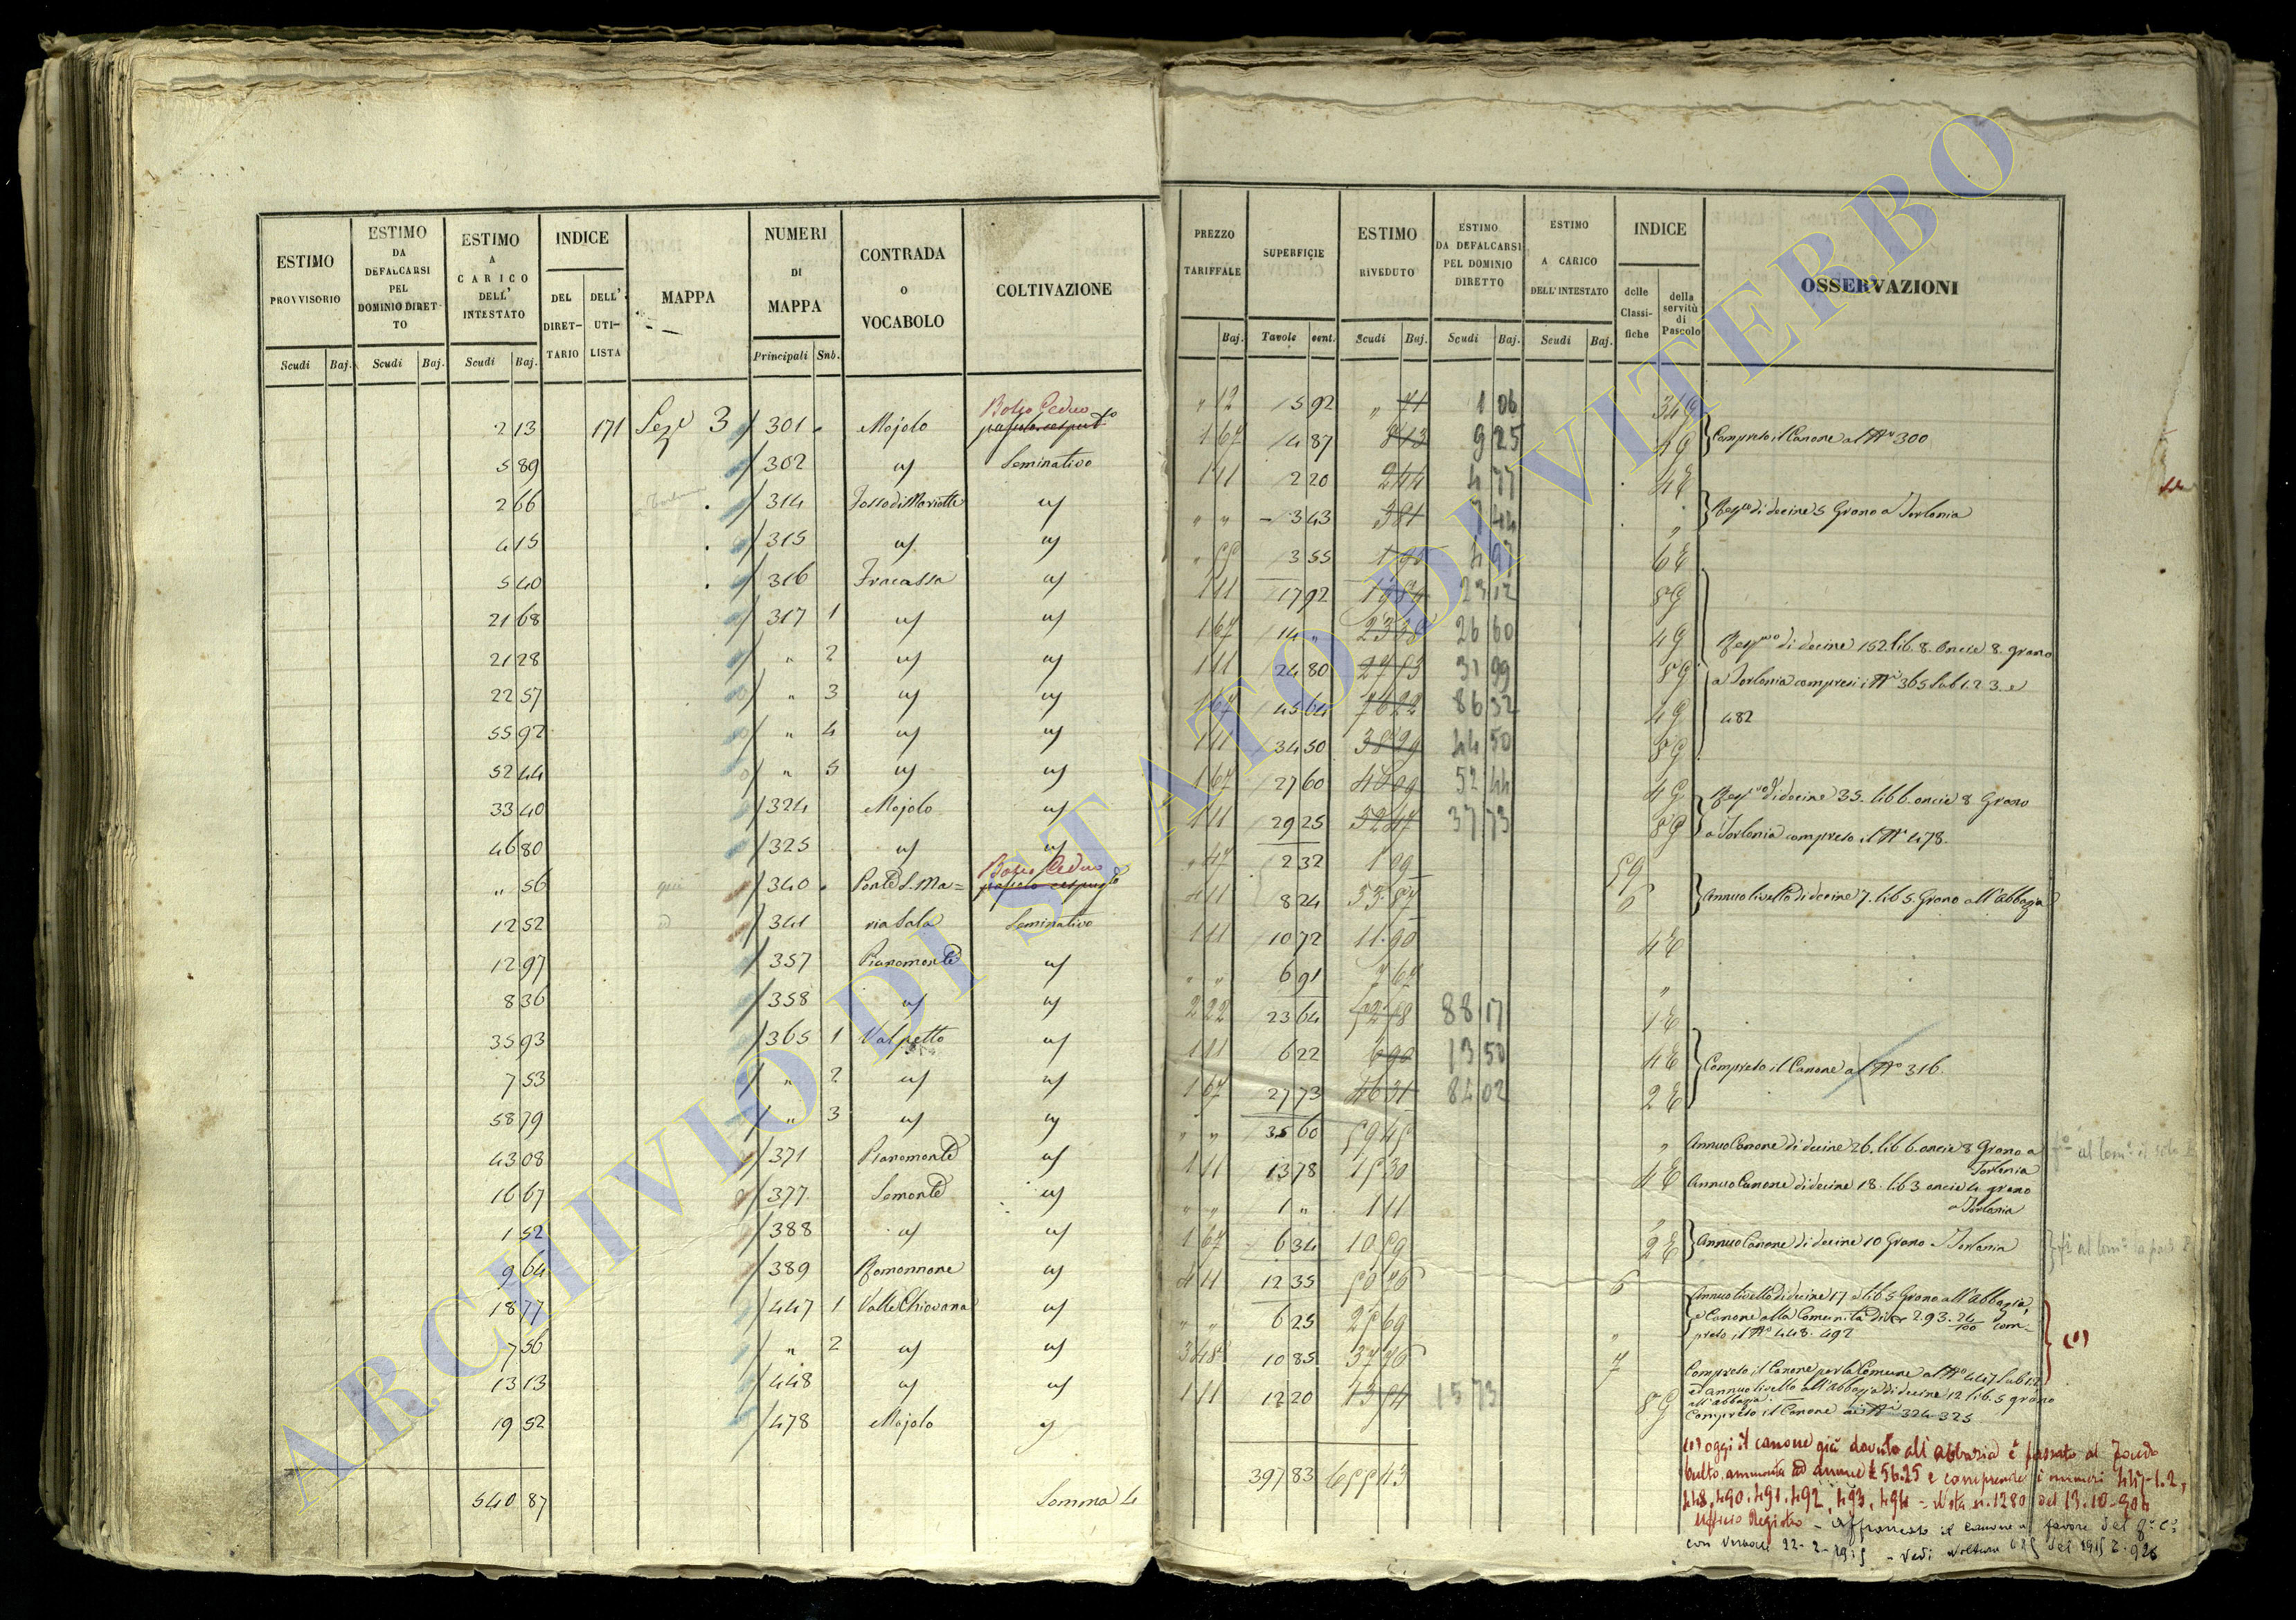 ESTIMO PROVVISORIO
ESTIMO DA DEFALCARSI PEL DOMINIO DIRET-TO
ESTIMO A CARICO DELL' INTESTATO
INDICE
DEL DIRET-TARIO
DELL' UTI-LISTA
MAPPA
NUMERI DI MAPPA
CONTRADA o VOCABOLO
COLTIVAZIONE
Scudi Baj. Scudi Baj. Scudi Baj. Principali Sub.
2 13 171 Sez.e 3 301 Mojolo Bosco Ceduo
5 89 302 " Seminativo
2 66 314 Fosso di Mariotte "
4 15 315 " "
5 40 316 Fracassa "
21 68 317 1 " "
21 28 " 2 " "
22 57 " 3 " "
55 92 " 4 " "
52 44 " 5 " "
33 40 324 Mojolo "
46 80 325 " "
" 56 340 Ponte S. Ma= Bosco Ceduo
12 52 341 ria Sala Seminativo
12 97 357 Pianomonte "
8 36 358 " "
35 93 365 1 Valpetto "
7 53 " 2 " "
58 79 " 3 " "
43 08 371 Pianomonte "
16 67 377 Semonte "
1 52 388 " "
9 64 389 Romonnone "
18 77 447 1 Valle Chiovana "
7 56 " 2 " "
13 13 448 " "
19 52 478 Mojolo "
540 87 Somma 4
PREZZO TARIFFALE
SUPERFICIE
ESTIMO RIVEDUTO
ESTIMO DA DEFALCARSI PEL DOMINIO DIRETTO
ESTIMO A CARICO DELL' INTESTATO
INDICE
delle Classi-fiche
della servitù di Pascolo
OSSERVAZIONI
Baj. Tavole cent. Scudi Baj. Scudi Baj. Scudi Baj.
" 12 5 92 " 71 1 06 34 G
1 67 4 87 8 13 9 25 4 G Compreso il Canone al N.o 300
1 11 2 20 2 44 4 77 4 E
" " 3 43 3 81 7 44 " di decine 5 Grano a Torlonia
3 55 4 97 6 E
1 11 17 92 19 89 23 12 8 G
1 67 14 " 23 38 26 60 4 G di decine 152 lib. 8. oncie 8. grano
1 11 24 80 27 53 31 99 8 G a Torlonia compresi i N.i 365 Sub 1. 2. 3. e
1 67 45 64 76 22 86 32 4 G 482
1 11 34 50 38 29 44 50 8 G
1 67 27 60 46 09 52 44 4 G di decine 35. lib 6. oncie 8 Grano
1 11 29 25 32 47 37 73 8 G a Torlonia compreso il N.o 478.
" 47 2 32 1 09
4 11 8 24 33 87 6 Annuo livello di decine 7. lib 5. Grano all'Abbazia
1 11 10 72 11.90 4 E
" " 6 91 7 67 "
2 22 23 64 52 48 88 17 1 E
1 11 6 22 6 90 13 50 4 E Compreso il Canone al N.o 316.
1 67 27 73 46 31 84 02 2 E
" " 35 60 59 45 " Annuo Canone di decine 26. lib 6. oncie 8 Grano a Torlonia
1 11 13 78 15 30 4 E Annuo Canone di decine 18. lib 3 oncie 4 grano a Torlonia
" " 1 " 1 11 "
1 67 6 34 10 59 2 E Annuo Canone di decine 10 Grano a Torlonia
4 11 12 35 50 76 6 Annuo livello di decine 17 e lib 5 Grano all'Abbazia,
" " 6 25 25 69 " e Canone alla Comunità di 2.93.24/100 com-
preso il N.o 448. 492 (1)
3 48 10 85 37 76 7 Compreso il Canone per la Comune al N.o 447 sub 1.2
ed annuo livello all'Abbazia di decine 12 lib. 5 grano
all'Abbazia.
1 11 12 20 13 54 15 73 8 G Compreso il Canone ai N.i 324 325
397 83 655 43
(1) oggi il canone già dovuto all'abbazia è passato al Fondo
Culto, ammonta ad annue £ 56.25 e comprende i numeri 447-1.2,
448, 490, 491, 492, 493, 494 - Nota n. 1280 del 13.10.904
Ufficio Registro - Affrancato il canone a favore del
con verbale 22-2-1915 - Vedi Voltura